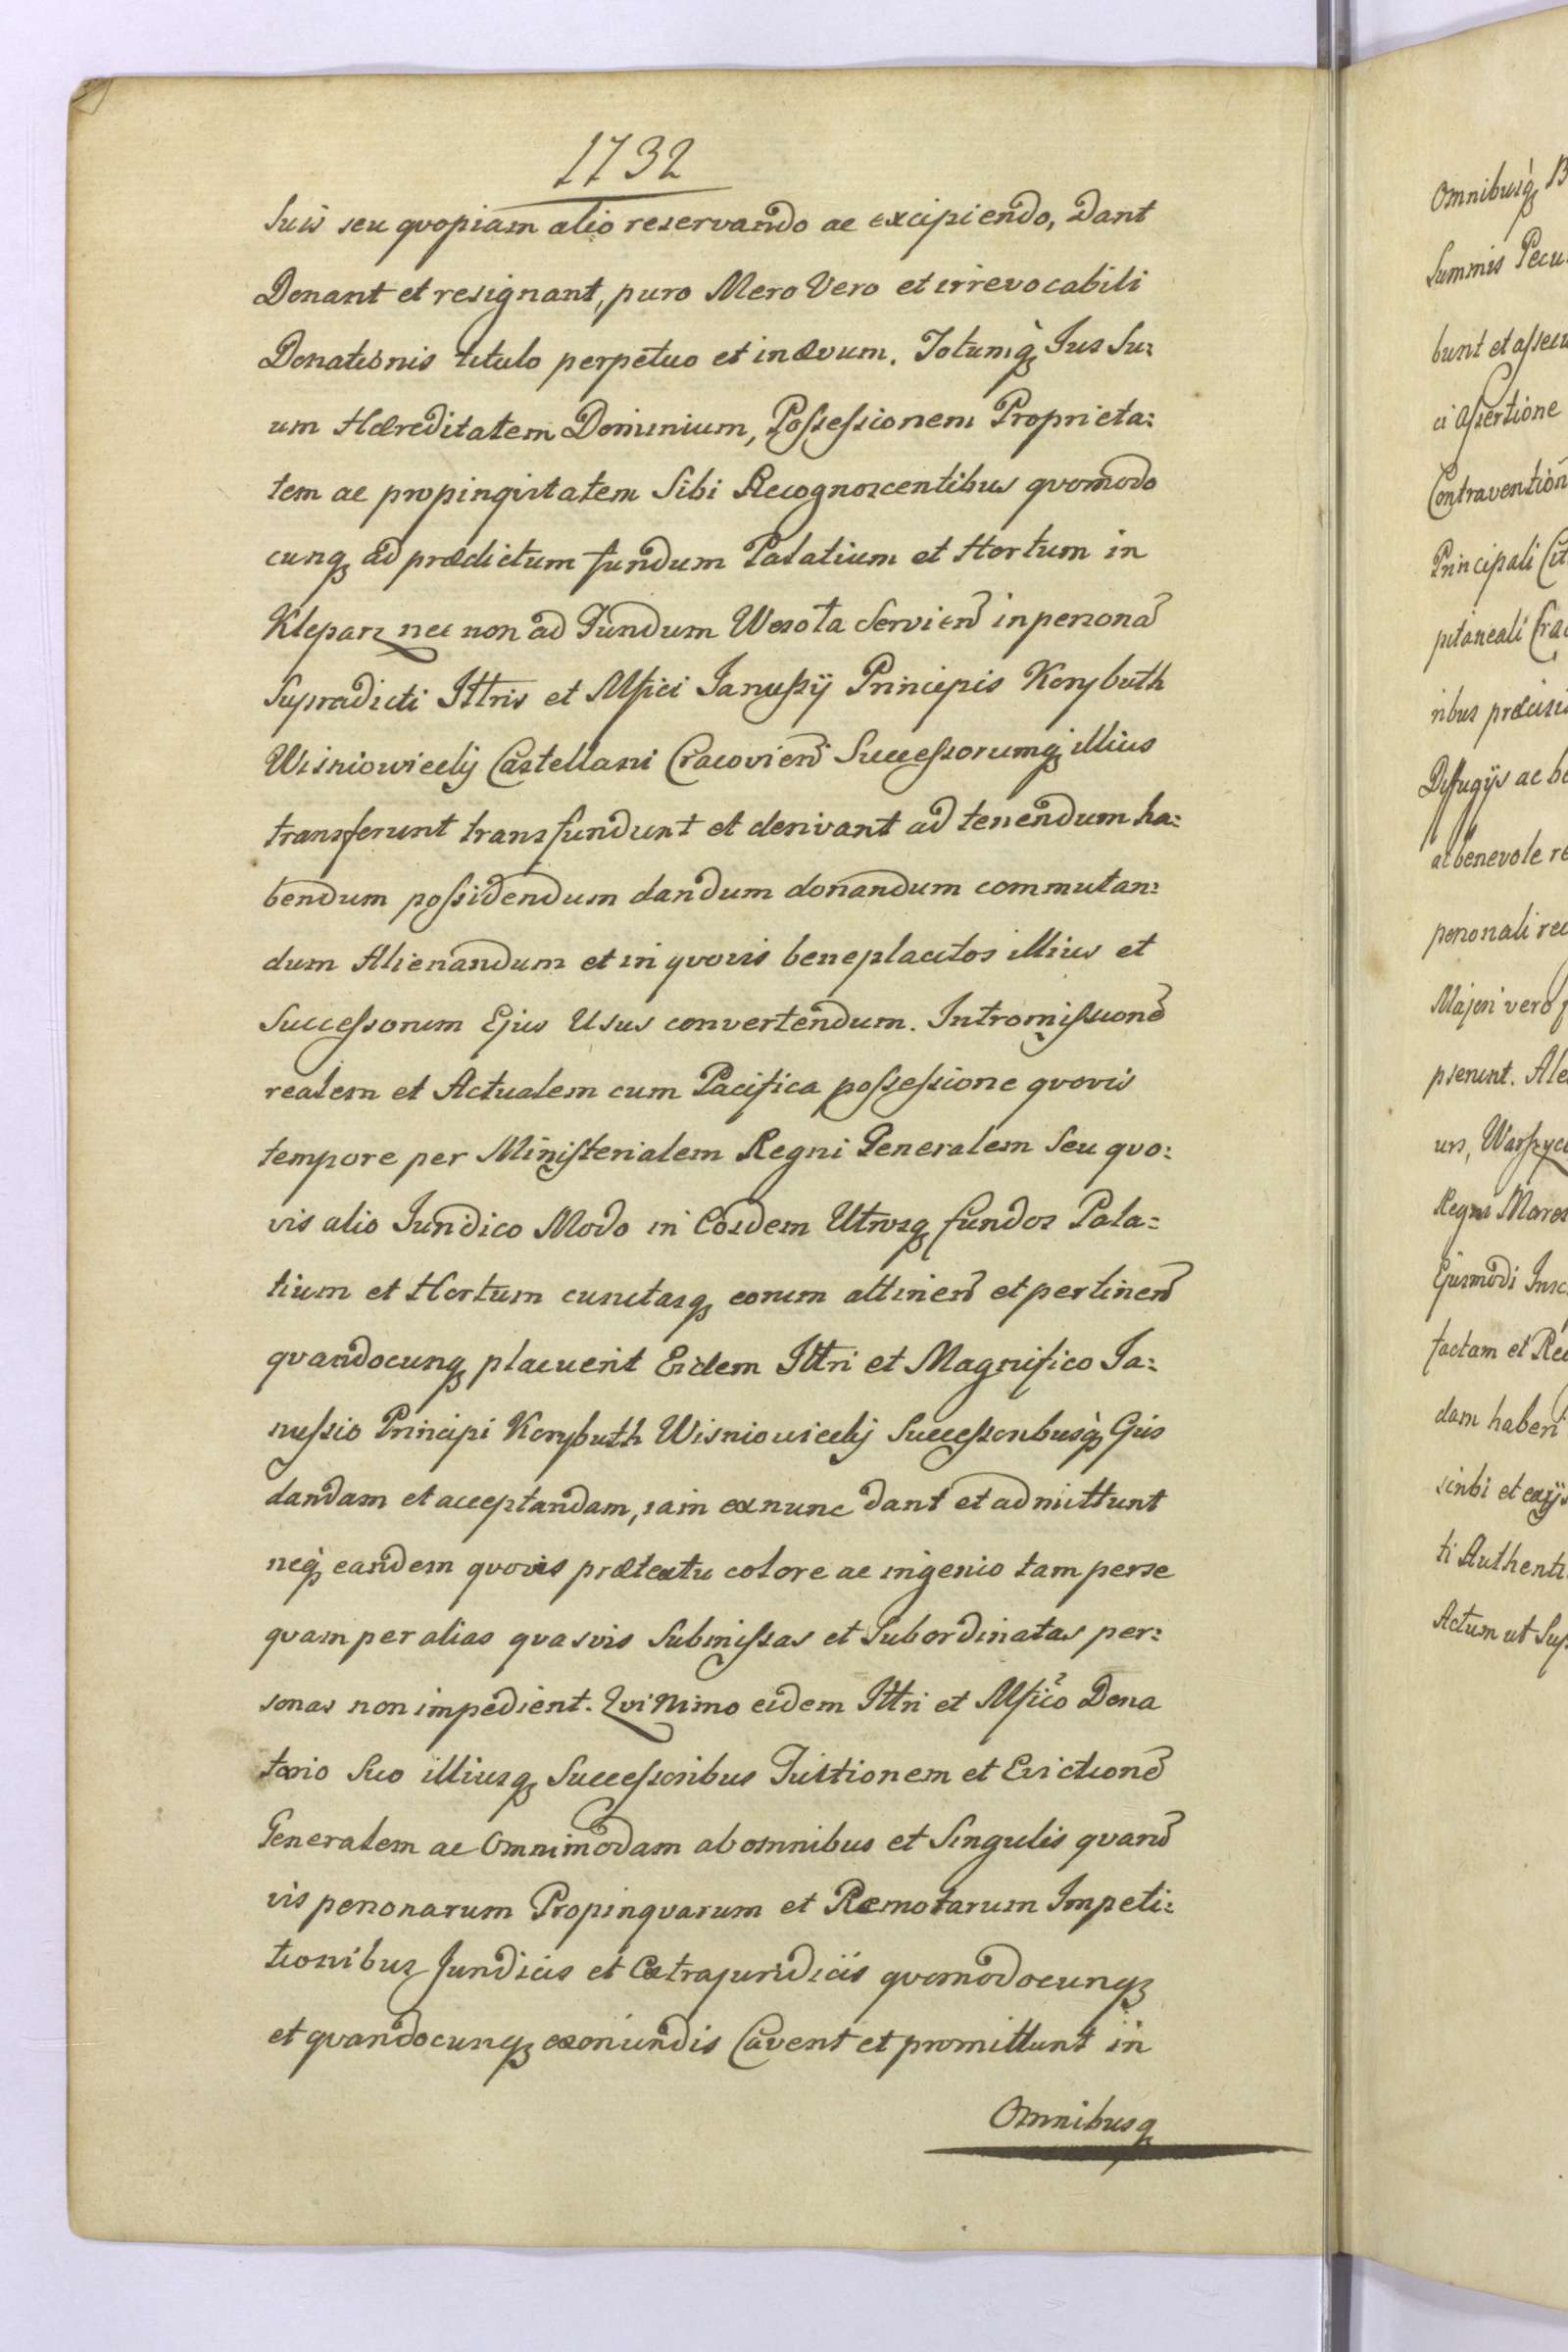 1732
Suis seu qvopiam alio reservando ac excipiendo, Dant
Donant et resignant, puro Mero Vero et irrevocabili
Donationis titulo perpetuo et in ævum. Totumq; Jus Su:
um Hæreditatem Dominium, Possessionem Proprieta:
tem ac propinqvitatem Sibi Recognoscentibus qvomodo
cunq; ad prædictum fundum Palatium et Hortum in
Kleparz nec non ad Fundum Wesoła Servien in persona
Supradicti Illtris et Mfici Janussij Principis Korybuth
Wisniowiecÿ Castellani Cracovien Successorumq; illius
transferunt transfundunt et derivant ad tenendum ha:
bendum possidendum dandum donandum commutan:
dum Alienandum et in qvovis beneplacitos illius et
Successorum Ejus Usus convertendum. Intromissione
realem et Actualem cum Pacifica possessione qvovis
tempore per Ministerialem Regni Generalem Seu qvo:
vis alio Juridico Modo in Eosdem Utrosq; fundos Pala:
tium et Hortum cunctasq; eorum attinen et pertinen
qvandocunq; placuerit Eidem Illtri et Magnifico Ja:
nussio Principi Korybuth Wisniowiecÿ Successoribusq; Ejus
dandam et acceptandam, iam ex nunc dant et admittunt
neq; eandem qvovis prætextu colore ac ingenio tam per se
qvam per alias qvasvis Submissas et Subordinatas per:
sonas non impedient. Qvinimo eidem Illtri et Mfico Dona
torio Suo illiusq; Successoribus Tuitionem et Evictione
Generalem ac Omnimodam ab omnibus et Singulis qvarū
vis personarum Propinqvarum et Remotarum Impeti:
tionibus Juridicis et Extrajuridicis qvomodocunq;
et qvandocunq; exoriundis Cavent et promittunt in
Omnibusq;
Omnibusq; B
Summis Pecu
bunt et assecu
ci Assertione
Contravention
Principali Cit
pitaneali Crac
ribus præcis
Diffugijs ac be
ac benevole re
personali rec
Majori vero
pserunt. Ale
us, Warszyc
Regni Mares
Ejusmodi Insc
factam et Rec
dam haberi
scribi et exijs
ti Authenti
Actum ut Sup